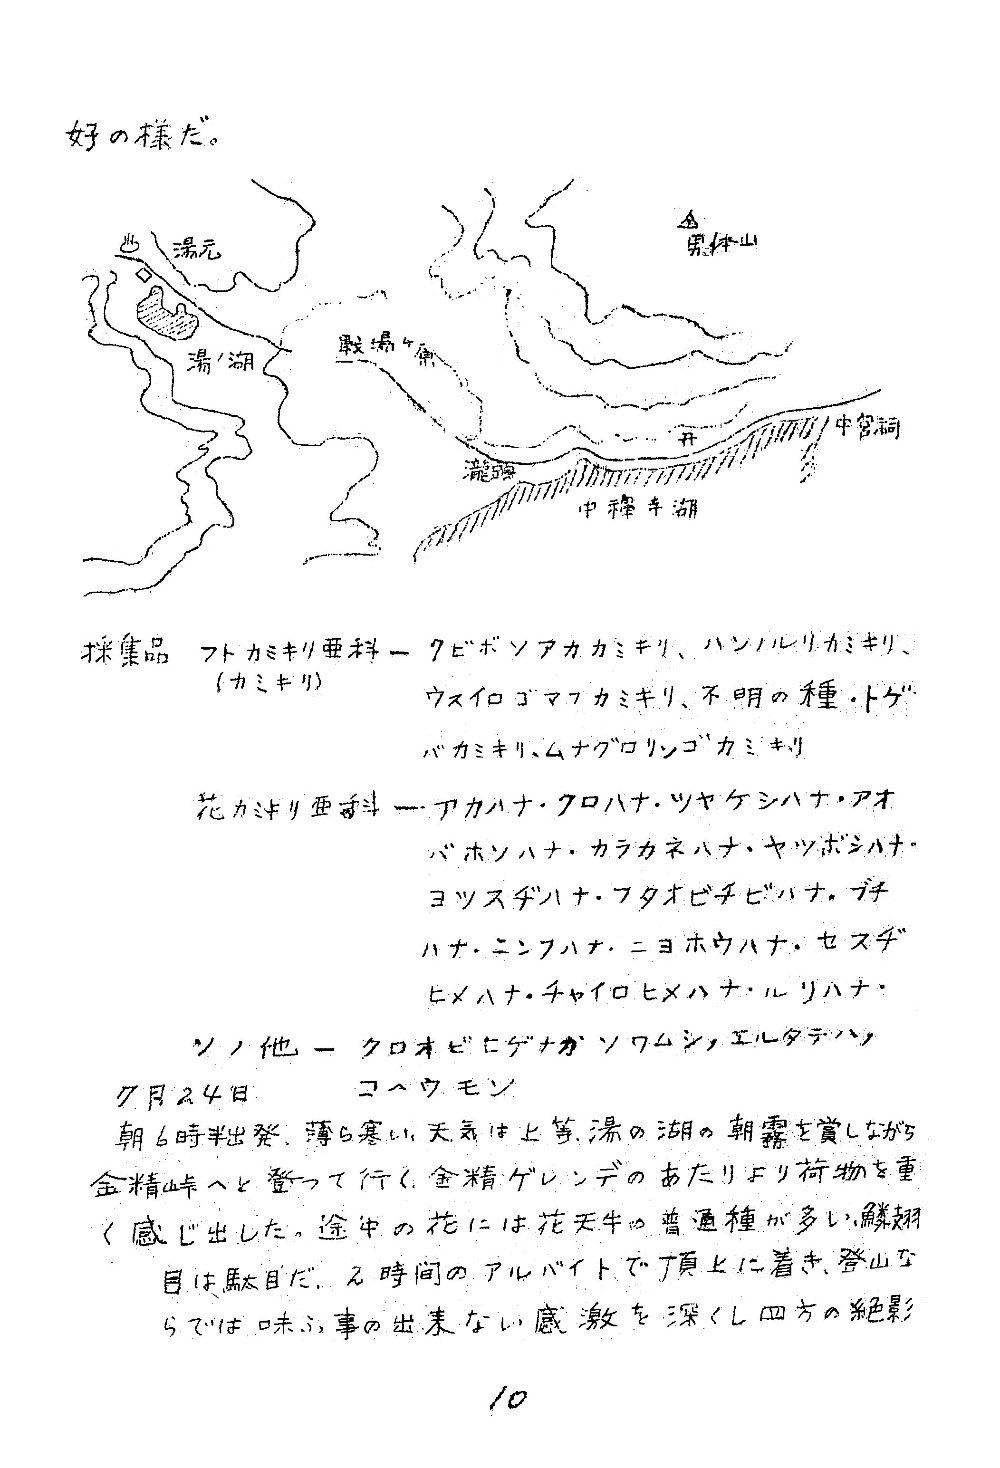 好の様だ。
男体山
湯元
戦場ヶ原
湯ノ湖
中宮祠
瀧頭
中禅寺湖
採集品 フトカミキリ亜科 ― クビボソアカカミキリ、ハンノルリカミキリ、
(カミキリ)
ウスイロゴマフカミキリ、不明の種・トゲ
バカミキリ、ムナグロリンゴカミキリ
花カミキリ亜科 ― アカハナ・クロハナ・ツヤケシハナ・アオ
バホソハナ・カラカネハナ・ヤツボシハナ・
ヨツスヂハナ・フタオビチビハナ・ブチ
ハナ・ニンフハナ・ニョホウハナ・セスヂ
ヒメハナ・チャイロヒメハナ・ルリハナ・
ソノ他 ― クロオビヒゲナガゾウムシ, エルタテハ,
コヘウモン
7月24日
朝6時半出発、薄ら寒い、天気は上等、湯の湖の朝霧を賞しながら
金精峠へと登って行く、金精ゲレンデのあたりより荷物を重
く感じ出した。途中の花には花天牛の普通種が多い、鱗翅
目は駄目だ、2時間のアルバイトで頂上に着き、登山な
らでは味ふ事の出来ない感激を深くし四方の絶影
10